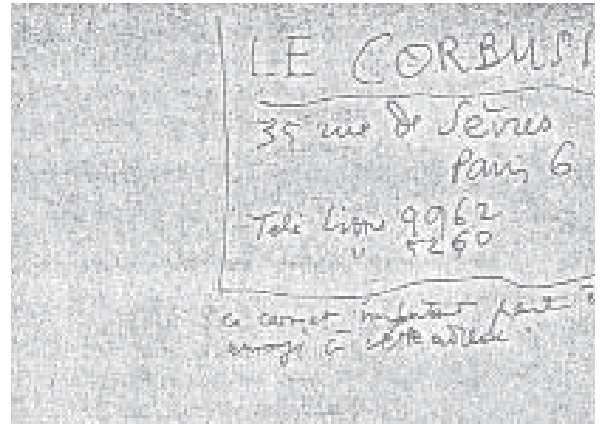 LE CORBUSI
35 rue de Sèvres
Paris 6
Telé Litré 9962
" 5260
ce carnet important peut
envoyé à cette adresse